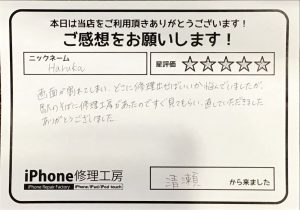 本日は当店をご利用頂きありがとうございます！
ご感想をお願いします！
ニックネーム
Haruka
星評価 ☆☆☆☆☆
画面が割れてしまい、どこに修理出せばいいか悩んでいましたが、
駅のそばに修理工房があったのですぐ見てもらい、直していただきました
ありがとうございました。
iPhone修理工房
iPhone Repair Factory iPhone/iPad/iPod touch
清瀬 から来ました